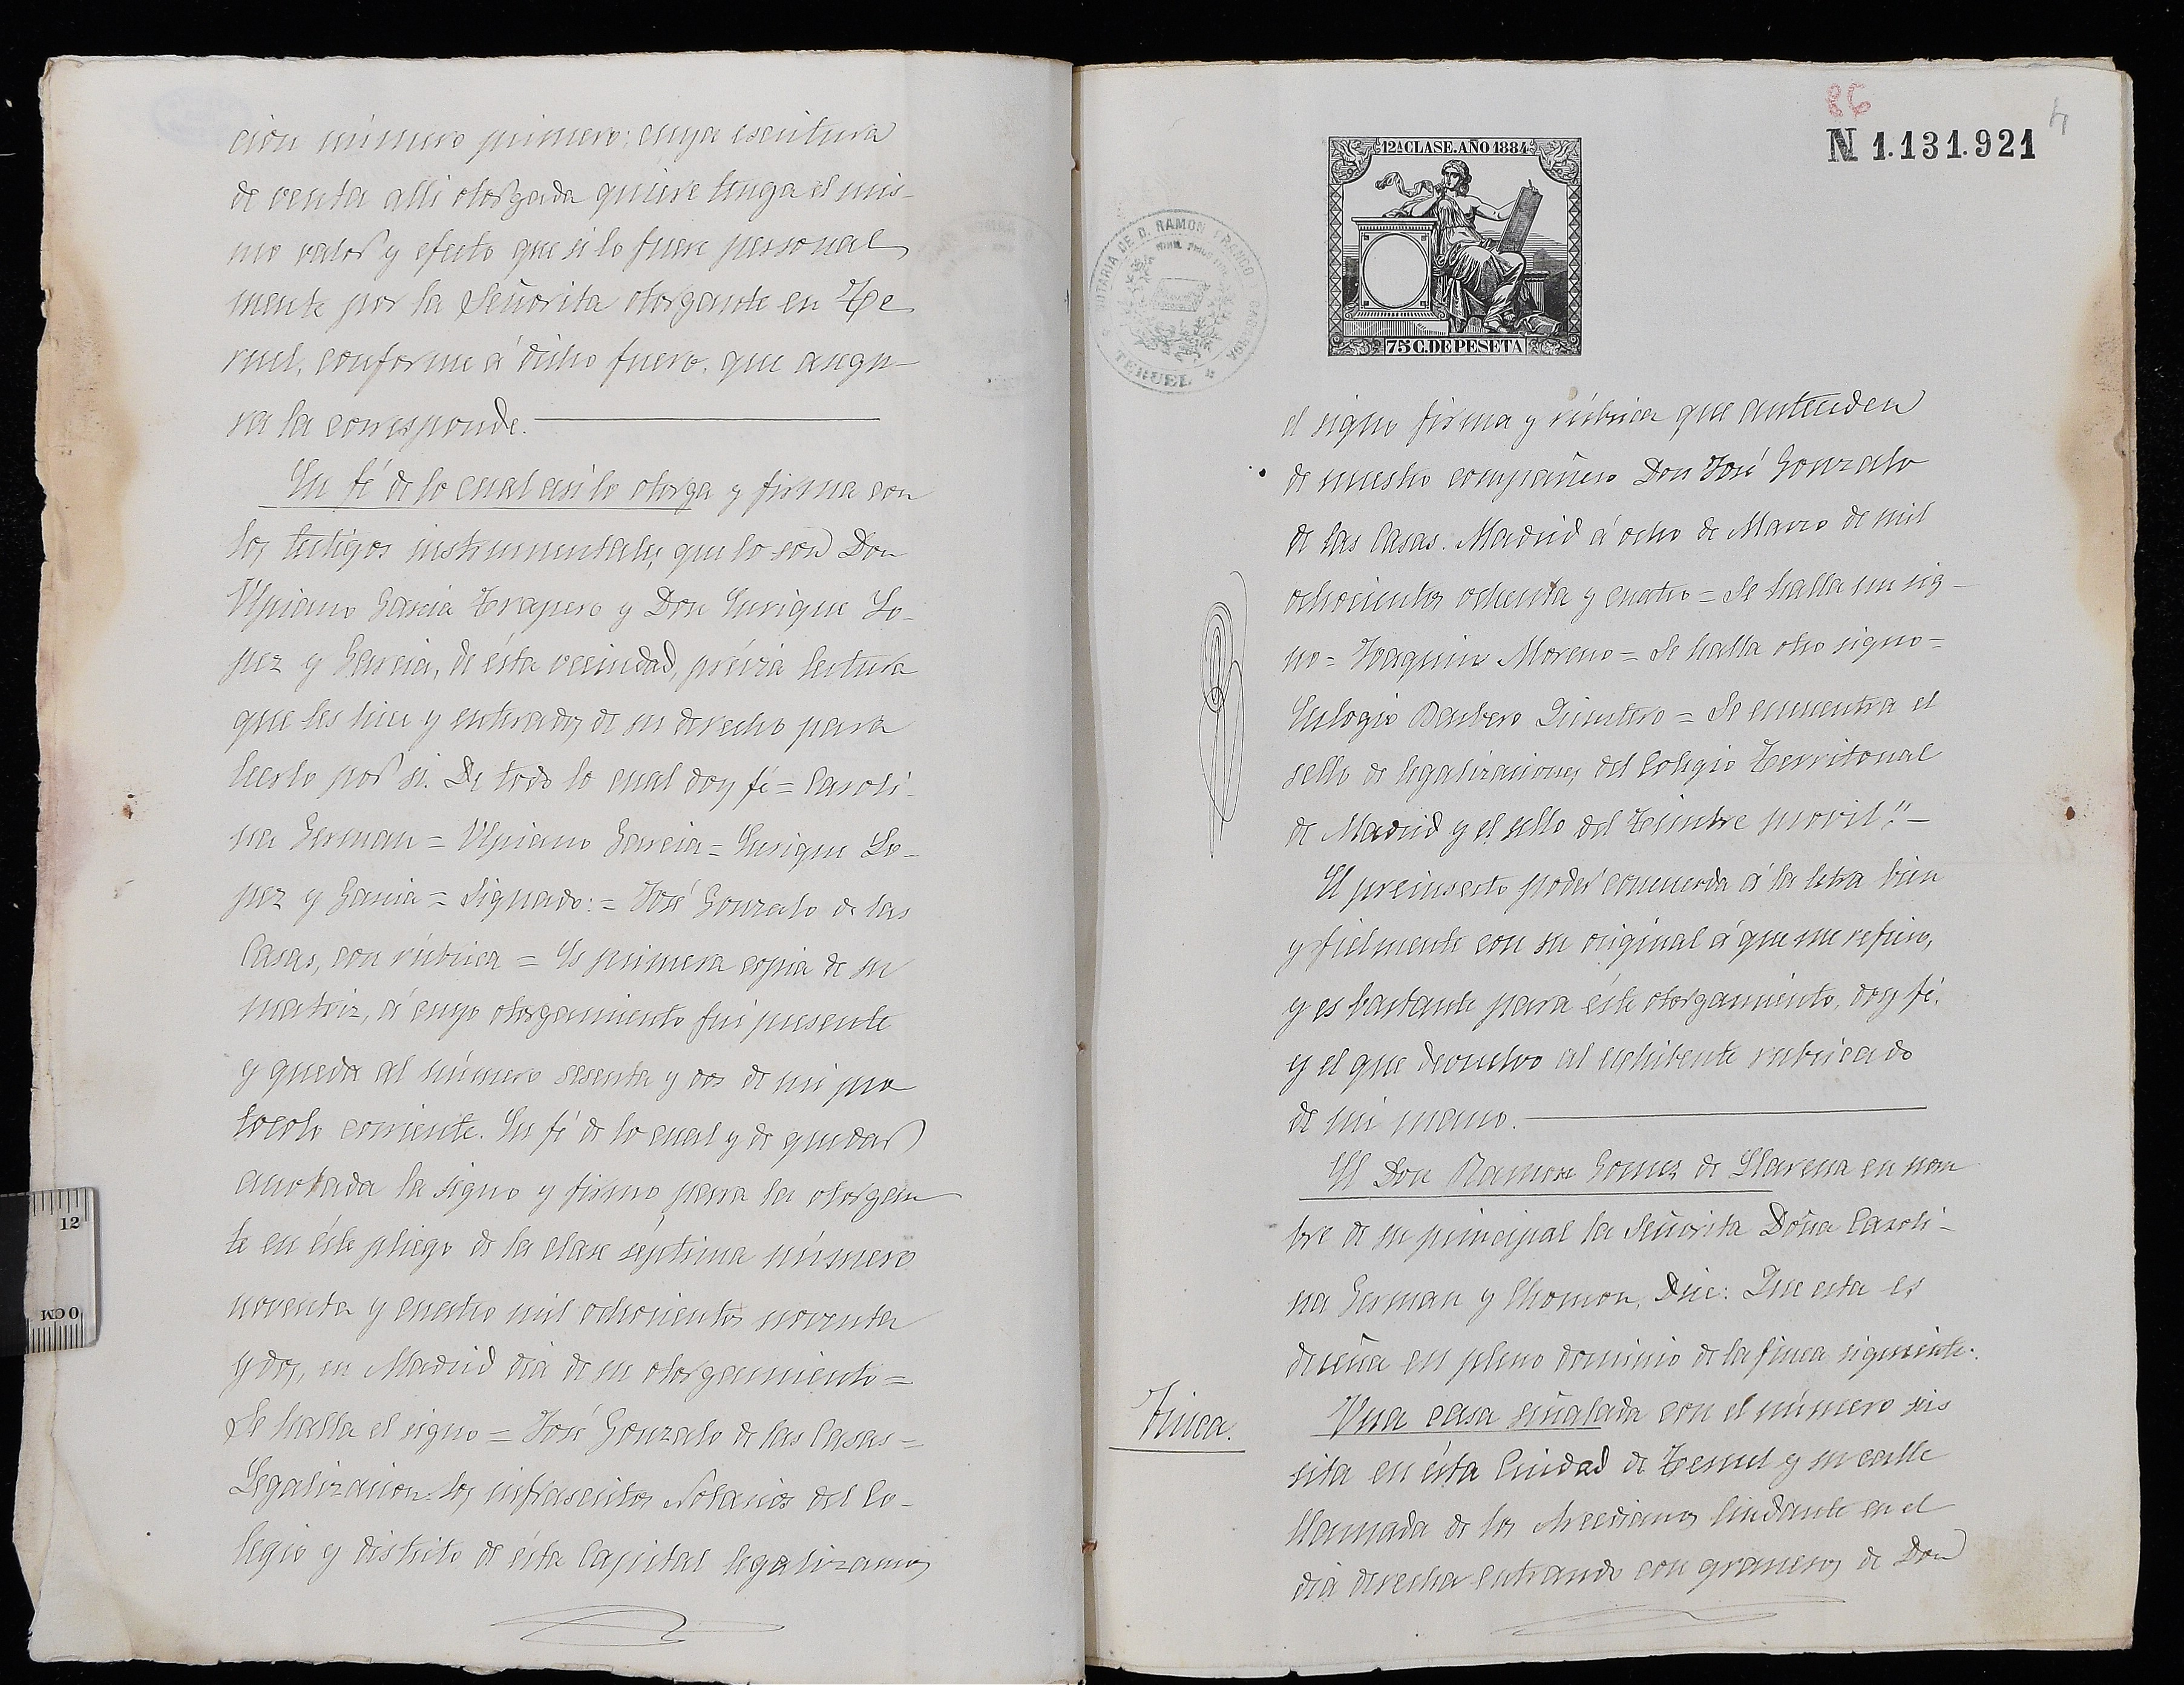 cion número primero; cuya escritura
de venta alli otorgada quiere tenga el mis-
mo valor y efecto que si lo fuere personal
mente por la Señorita otorgante en Te
ruel, conforme á dicho fuero, que asegu-
ra la corresponde.
En fé de lo cual asi lo otorga y firma con
los testigos instrumentales, que lo son Don
Ulpiano Garcia Trapero y Don Enrique Lo-
pez y Garcia, de ésta vecindad, prévia lectura
que les hice y enterados de su derecho para
leerlo por si. De todo lo cual doy fé = Caroli-
na German = Ulpiano Garcia = Enrique Lo-
pez y Garcia = Signado: = José Gonzalo de las
Casas, con rúbrica = Es primera copia de su
matriz, á cuyo otorgamiento fui presente
y queda al número sesenta y dos de mi pro
tocolo corriente. En fé de lo cual y de quedar
anotada la signo y firmo para la otorgan
te en éste pliego de la clase séptima número
noventa y cuatro mil ochocientos noventa
y dos, en Madrid dia de su otorgamiento =
Se halla el signo = José Gonzalo de las Casas =
Legalizacion = los infrascritos Notarios del Co-
legio y distrito de ésta Capital legalizamos
86
4
N 1.131.921
12ª CLASE. AÑO 1884
75 C. DE PESETA
NOTARIA DE D. RAMON FRANCO
TERUEL
el signo firma y rúbrica que anteceden
de nuestro compañero Don José Gonzalo
de las Casas. Madrid á ocho de Marzo de mil
ochocientos ochenta y cuatro = Se halla un sig-
no = Joaquin Moreno = Se halla otro signo =
Eulogio Barbero Quintero = Se encuentra el
sello de legalizaciones del Colegio Territorial
de Madrid y el sello del Timbre movil."-
El preinserto poder concuerda á la letra bien
y fielmente con su original á que me refiero,
y es bastante para éste otorgamiento, doy fé,
y el que devuelvo al exhibente rubricado
de mi mano.
El Don Ramon Gomez de Llarena en nom
bre de su principal la Señorita Doña Caroli-
na German y Chomon, Dice: Que esta es
dueña en pleno dominio de la finca siguiente.
Finca.
Una casa señalada con el número seis
sita en ésta Ciudad de Teruel y su calle
llamada de los lindante en el
dia derecha entrando con graneros de Don